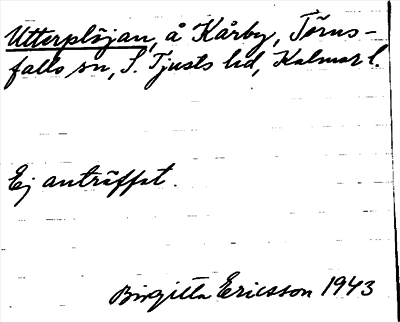 Utterplöjan, å Kårby, Törns-
falls sn, S. Tjusts hd, Kalmar l.
Ej anträffat.
Birgitta Ericsson 1943